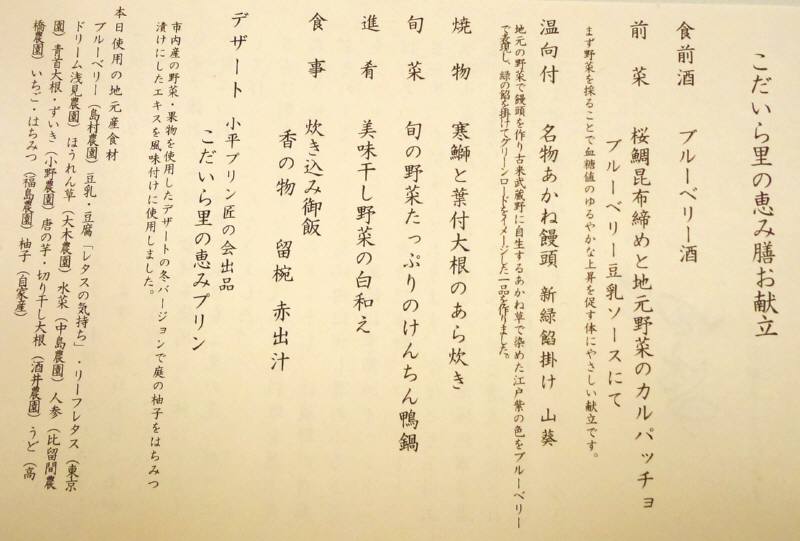 こだいら里の恵み膳お献立
食前酒　ブルーベリー酒
前　菜　桜鯛昆布締めと地元野菜のカルパッチョ
ブルーベリー豆乳ソースにて
まず野菜を採ることで血糖値のゆるやかな上昇を促す体にやさしい献立です。
温向付　名物あかね饅頭　新緑餡掛け　山葵
地元の野菜で饅頭を作り古来武蔵野に自生するあかね草で染めた江戸紫の色をブルーベリー
で表現し、緑の餡を掛けてグリーンロードをイメージした一品を作りました。
焼　物　寒鰤と葉付大根のあら炊き
旬　菜　旬の野菜たっぷりのけんちん鴨鍋
進　肴　美味干し野菜の白和え
食　事　炊き込み御飯
香の物　留椀　赤出汁
デザート　小平プリン匠の会出品
こだいら里の恵みプリン
市内産の野菜・果物を使用したデザートの冬バージョンで庭の柚子をはちみつ
漬けにしたエキスを風味付けに使用しました。
本日使用の地元産食材
ブルーベリー（島村農園）豆乳・豆腐「レタスの気持ち」・リーフレタス（東京
ドリーム浅見農園）ほうれん草（大木農園）水菜（中島農園）人参（比留間農
園）青首大根・ずいき（小野農園）唐の芋・切り干し大根（酒井農園）うど（高
橋農園）いちご・はちみつ（福島農園）柚子（自家産）